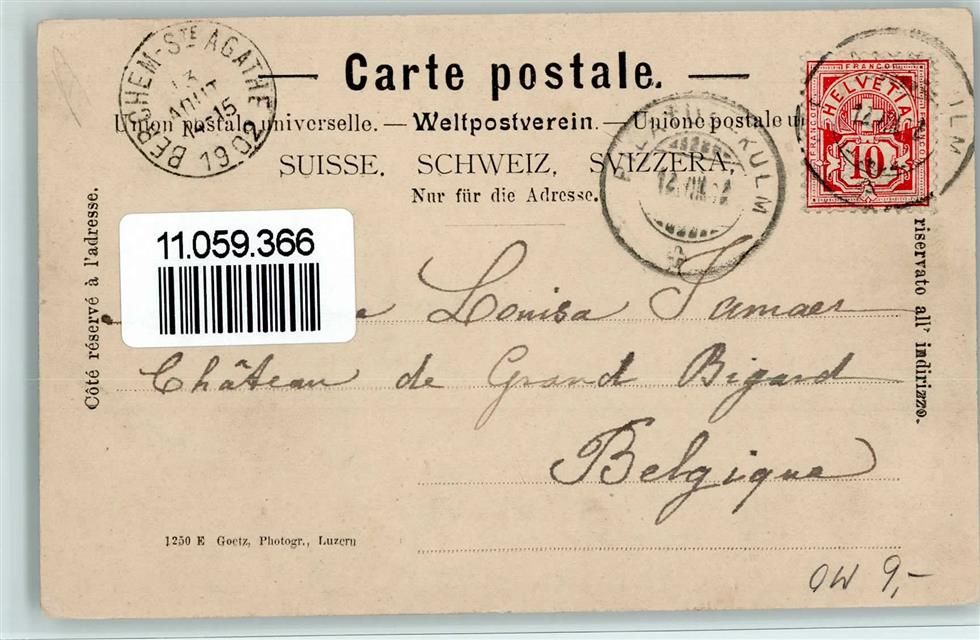 BERCHEM-STE AGATHE
13
AOUT
15
1902
Carte postale.
Union postale universelle. — Weltpostverein. — Unione postale
SUISSE. SCHWEIZ. SVIZZERA.
Nur für die Adresse.
FRANCO
HELVETIA
FRANCO
10
KULM
12. VIII.
Côté réservé à l'adresse.
riservato all' indirizzo.
11.059.366
Louisa
Château de Grand Bigard
Belgique
1250 E Goetz, Photogr., Luzern
OW 9,-